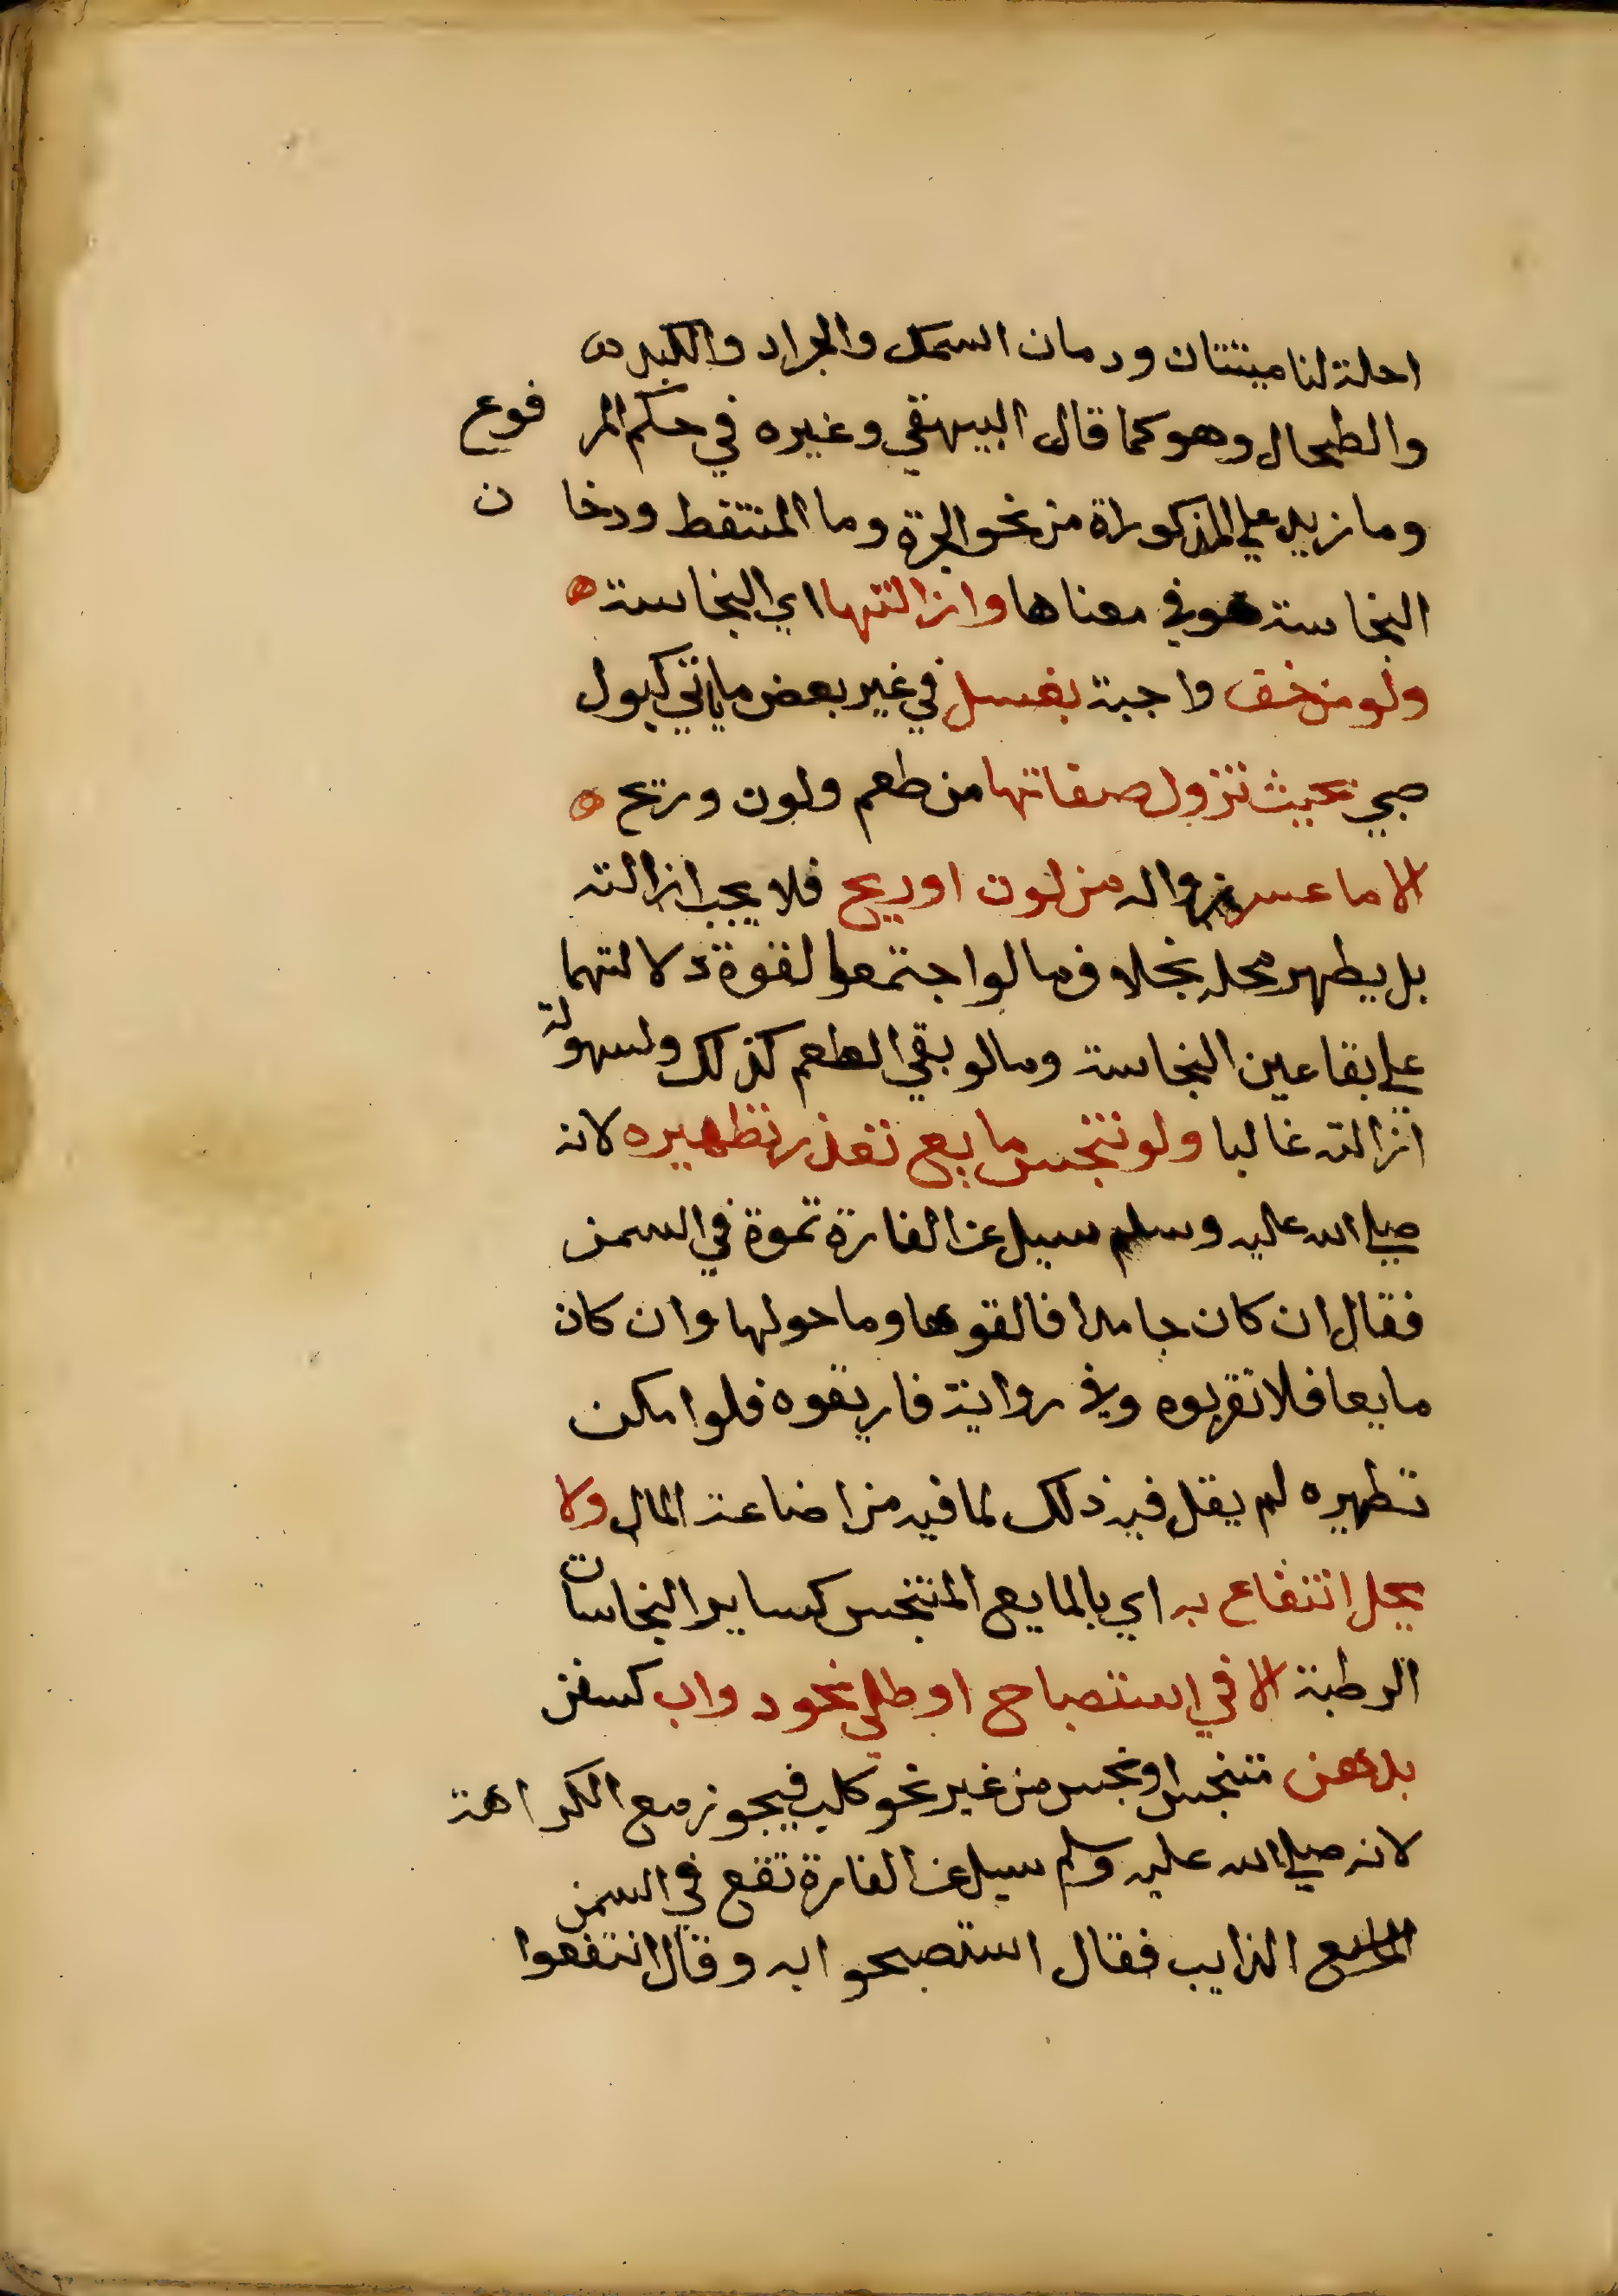 احلة لنا ميتتان ودمان السمك والجراد والكبد
والطحال وهو كما قال البيهقي وغيره في حكم المرفوع
وما زيد علي المذكوراة من نحو الجرة وما المنتفط ودخان
النجاسة هو في معناها وازالتها اي النجاسة ه
ولو من خف واجبة بغسل في غير بعض ما ياتي كبول
صبي بحيث تزول صفاتها من طعم ولون وريح ه
الا ما عسر زواله من لون او ريح فلا يجب ازالته
بل يطهر محله بخلاف ما لو اجتمعوا لقوة دلالتهما
علي بقا عين النجاسة وما لو بقي الطعم كذلك ولسهولة
ازالته غالبا ولو تنجس مايع تعذر تطهيره لانه
صلي الله عليه وسلم سيل عن الفارة تموة في السمن
فقال ان كان جامدا فالقوها وما حولها وان كان
مايعا فلا تقربوه وفي رواية فاريقوه فلو امكن
تطهيره لم يقل فيه ذلك لما فيه من اضاعة المال ولا
يحل انتفاع به اي بالمايع المتنجس كساير النجاسات
الرطبة الا في استصباح او طلي نحو دواب كسفن
بدهن متنجس او نجس من غير نحو كلب فيجوز مع الكراهة
لانه صلي الله عليه وسلم سيل عن الفارة تقع في السمن
المايع الذايب فقال استصبحوا به وقال انتفعوا